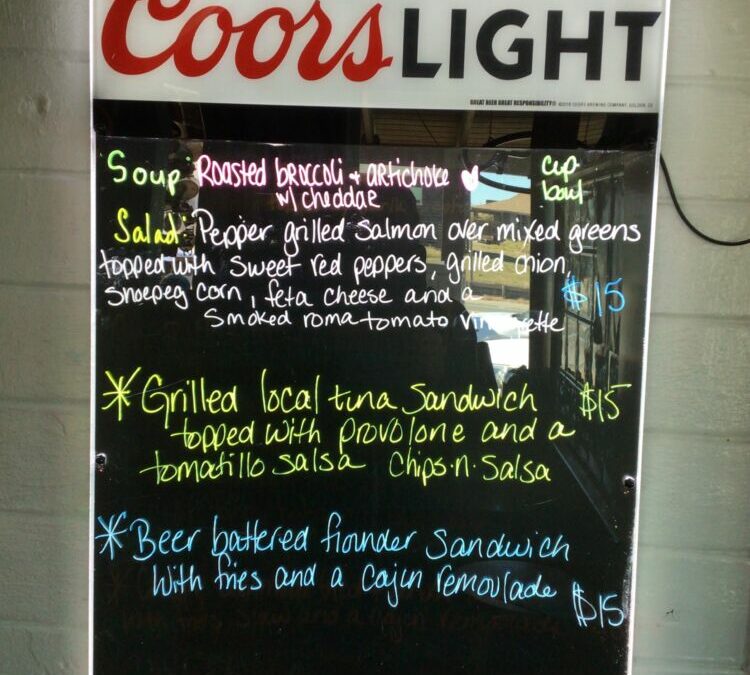 Coors LIGHT
GREAT BEER GREAT RESPONSIBILITY® ©2018 COORS BREWING COMPANY, GOLDEN, CO
Soup: Roasted broccoli + artichoke ♥ cup
w/ cheddar bowl
Salad: Pepper grilled Salmon over mixed greens
topped with sweet red peppers, grilled onion,
shoepeg corn, feta cheese and a $15
smoked roma tomato vinaigrette
*Grilled local tuna Sandwich $15
topped with provolone and a
tomatillo salsa chips·n·Salsa
*Beer battered flounder Sandwich
with fries and a cajun remoulade $15